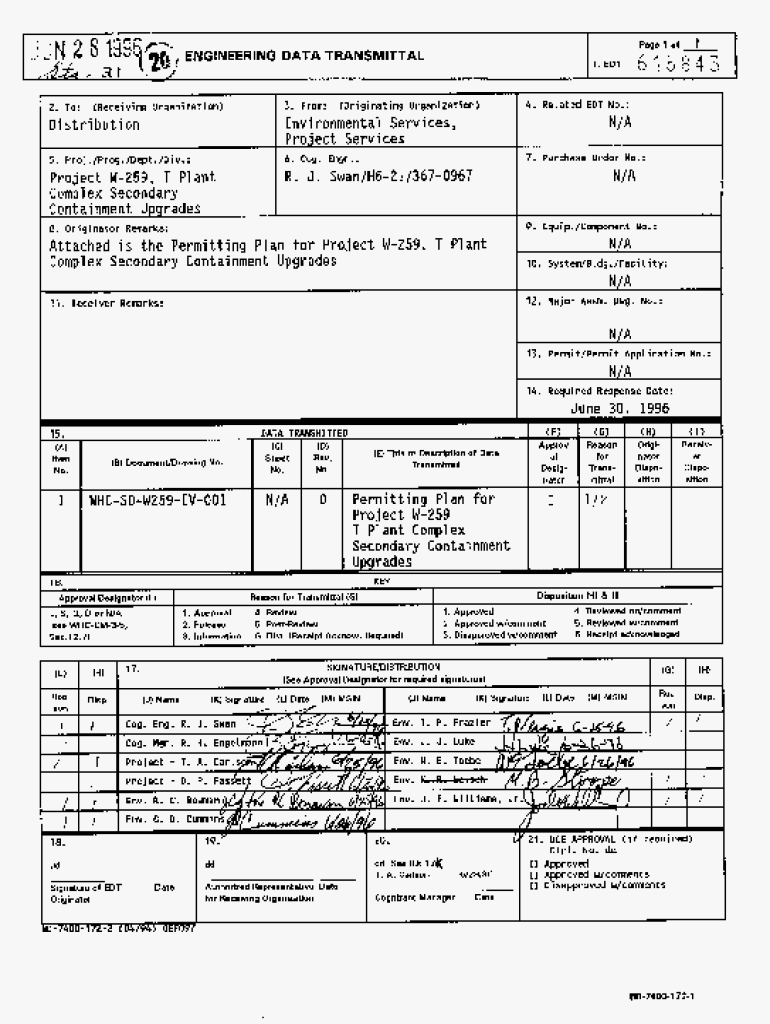 JUN 28 1996
Sta. 31
20
ENGINEERING DATA TRANSMITTAL
Page 1 of 1
1. EDT 615843
2. To: (Receiving Organization)
Distribution
3. From: (Originating Organization)
Environmental Services,
Project Services
4. Related EDT No.:
N/A
5. Proj./Prog./Dept./Div.:
Project W-259, T Plant
Complex Secondary
Containment Upgrades
6. Cog. Engr.:
R. J. Swan/H6-2 /367-0967
7. Purchase Order No.:
N/A
8. Originator Remarks:
Attached is the Permitting Plan for Project W-259, T Plant
Complex Secondary Containment Upgrades
9. Equip./Component No.:
N/A
10. System/Bldg./Facility:
N/A
11. Receiver Remarks:
12. Major Assm. Dwg. No.:
N/A
13. Permit/Permit Application No.:
N/A
14. Required Response Date:
June 30, 1996
15. DATA TRANSMITTED
(A) Item No.
(B) Document/Drawing No.
(C) Sheet No.
(D) Rev. No.
(E) Title or Description of Data Transmitted
(F) Approval Designator
(G) Reason for Transmittal
(H) Originator Disposition
(I) Receiver Disposition
1
WHC-SD-W259-EV-001
N/A
0
Permitting Plan for
Project W-259
T Plant Complex
Secondary Containment
Upgrades
1/2
16. KEY
Approval Designator (F)
Reason for Transmittal (G)
Disposition (H) & (I)
E, S, Q, D or N/A
(see WHC-CM-3-5,
Sec.12.7)
1. Approval
2. Release
3. Information
4. Review
5. Post-Review
6. Dist. (Receipt Acknow. Required)
1. Approved
2. Approved w/comment
3. Disapproved w/comment
4. Reviewed no/comment
5. Reviewed w/comment
6. Receipt acknowledged
17. SIGNATURE/DISTRIBUTION
(See Approval Designator for required signatures)
(G) Reason
(H) Disp.
(J) Name
(K) Signature
(L) Date
(M) MSIN
(J) Name
(K) Signature
(L) Date
(M) MSIN
(G) Reason
(H) Disp.
Cog. Eng. R. J. Swan
Env. T. P. Frazier
Cog. Mgr. R. H. Engelmann
Env. J. J. Luke
6-26-96
Project - T. A. Carlson
6/25/96
Env. W. E. Toebe
6/26/96
Project - D. P. Fassett
Env.
Env. A. C. Bowman
Env. J. F. Williams, Jr.
Env. G. D. Cummins
6/26/96
18.
Signature of EDT
Originator
Date
19.
Authorized Representative Date
for Receiving Organization
20.
Cognizant Manager
Date
21. DOE APPROVAL (if required)
Ctrl. No.
[] Approved
[] Approved w/comments
[] Disapproved w/comments
BD-7400-172-2 (04/94) GEF097
BD-7400-172-1